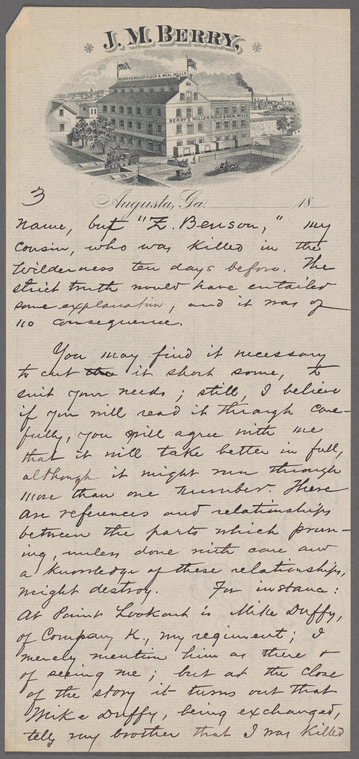 J. M. BERRY,
BERRY'S ROLLER FLOUR & MEAL MILLS
BERRY'S ROLLER FLOUR & MEAL MILLS
Augusta, Ga. 18
3
name, but "Z. Benson," my
cousin, who was killed in the
Wilderness ten days before. The
strict truth would have entailed
some explanation, and it was of
no consequence.
You may find it necessary
to cut the it short some, to
suit your needs; still, I believe
if you will read it through care-
fully, you will agree with me
that it will take better in full,
although it might run through
more than one number. There
are references and relationships
between the parts which prun-
ing, unless done with care and
a knowledge of these relationships,
might destroy. For instance:
At Point Lookout is Mike Duffy,
of Company K., my regiment; I
merely mention him as there &
of seeing me; but at the close
of the story it turns out that
Mike Duffy, being exchanged,
tells my brother that I was killed